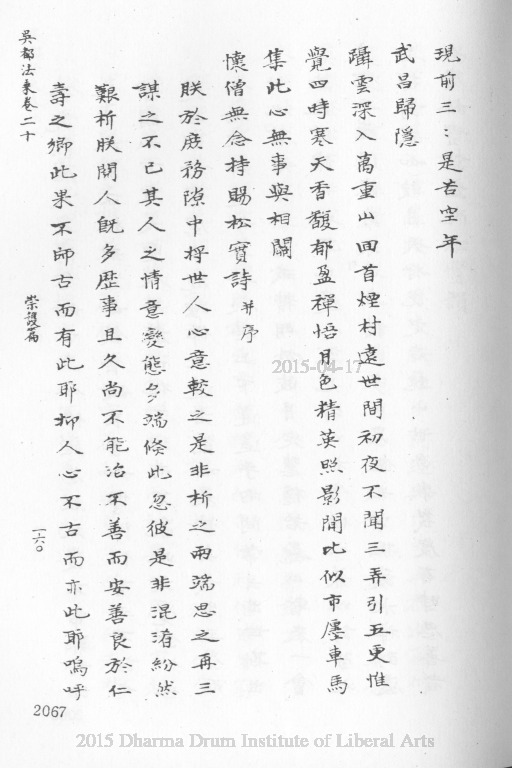 現前三:是若空年
武昌歸隱
躡雲深入萬重山回首煙村遠世間初夜不聞三弄引五更惟
覺四時寒天香馥郁盈禪悟月色精英照影閒比似市廛車馬
集此心無事與相關
懷僧無念持賜松實詩并序
朕於庶務隙中將世人心意較之是非析之兩端思之再三
謀之不已其人之情意變態多端倏此忽彼是非混淆紛然
艱析朕閱人既多歷事且久尚不能治不善而安善良於仁
壽之鄉此果不師古而有此耶抑人心不古而亦此耶嗚呼
吳都法乘卷二十
崇護篇
一六〇
2067
2015-04-17
2015 Dharma Drum Institute of Liberal Arts